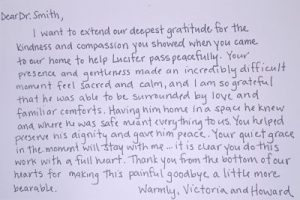 Dear Dr. Smith,
I want to extend our deepest gratitude for the
kindness and compassion you showed when you came
to our home to help Lucifer pass peacefully. Your
presence and gentleness made an incredibly difficult
moment feel sacred and calm, and I am so grateful
that he was able to be surrounded by love and
familiar comforts. Having him home in a space he knew
and where he was safe meant everything to us. You helped
preserve his dignity and gave him peace. Your quiet grace
in the moment will stay with me... it is clear you do this
work with a full heart. Thank you from the bottom of our
hearts for making this painful goodbye a little more
bearable. Warmly, Victoria and Howard